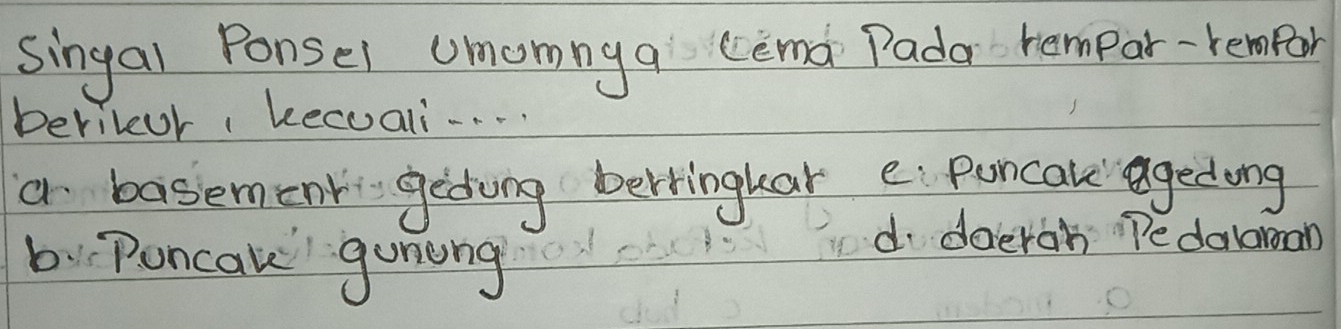 Singal Ponsel umumnya lema Pada tempat-tempat
berikut, kecuali....
a. basement gedung bertingkat c. puncak gedung
b. Puncak gunung d. daerah Pedalaman